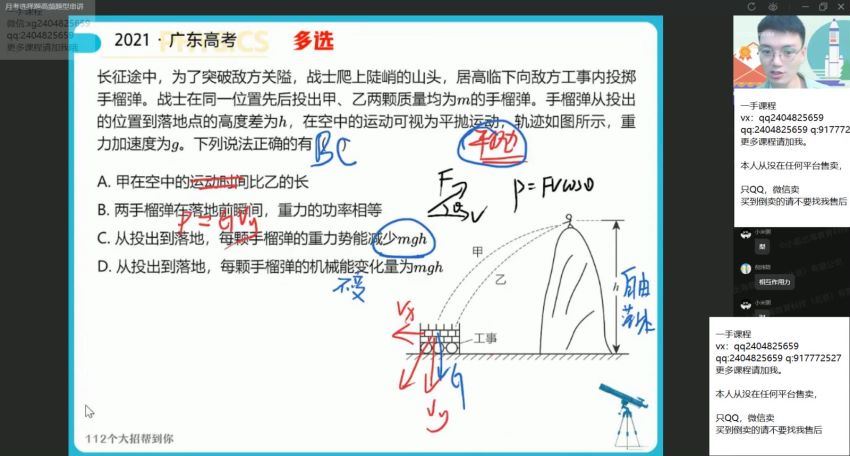 月考选择题高频题型串讲
一手课程
微信:xg2404825659
qq:2404825659
更多课程请加我
2021 · 广东高考
多选
长征途中，为了突破敌方关隘，战士爬上陡峭的山头，居高临下向敌方工事内投掷
手榴弹。战士在同一位置先后投出甲、乙两颗质量均为m的手榴弹。手榴弹从投出
的位置到落地点的高度差为h，在空中的运动可视为平抛运动，轨迹如图所示，重
力加速度为g。下列说法正确的有
BC
A. 甲在空中的运动时间比乙的长
B. 两手榴弹在落地前瞬间，重力的功率相等
P=GVy
C. 从投出到落地，每颗手榴弹的重力势能减少mgh
D. 从投出到落地，每颗手榴弹的机械能变化量为mgh
不变
F
θ
V
P=FVcosθ
甲
乙
h
自由
落体
Vx
工事
G
Vy
112个大招帮到你
一手课程
vx：qq2404825659
qq:2404825659 q:917772
更多课程请加我。
本人从没在任何平台售卖，
只QQ，微信卖
买到倒卖的请不要找我售后
型
相互作用力
一手课程
vx：qq2404825659
qq:2404825659 q:917772527
更多课程请加我。
本人从没在任何平台售卖，
只QQ，微信卖
买到倒卖的请不要找我售后